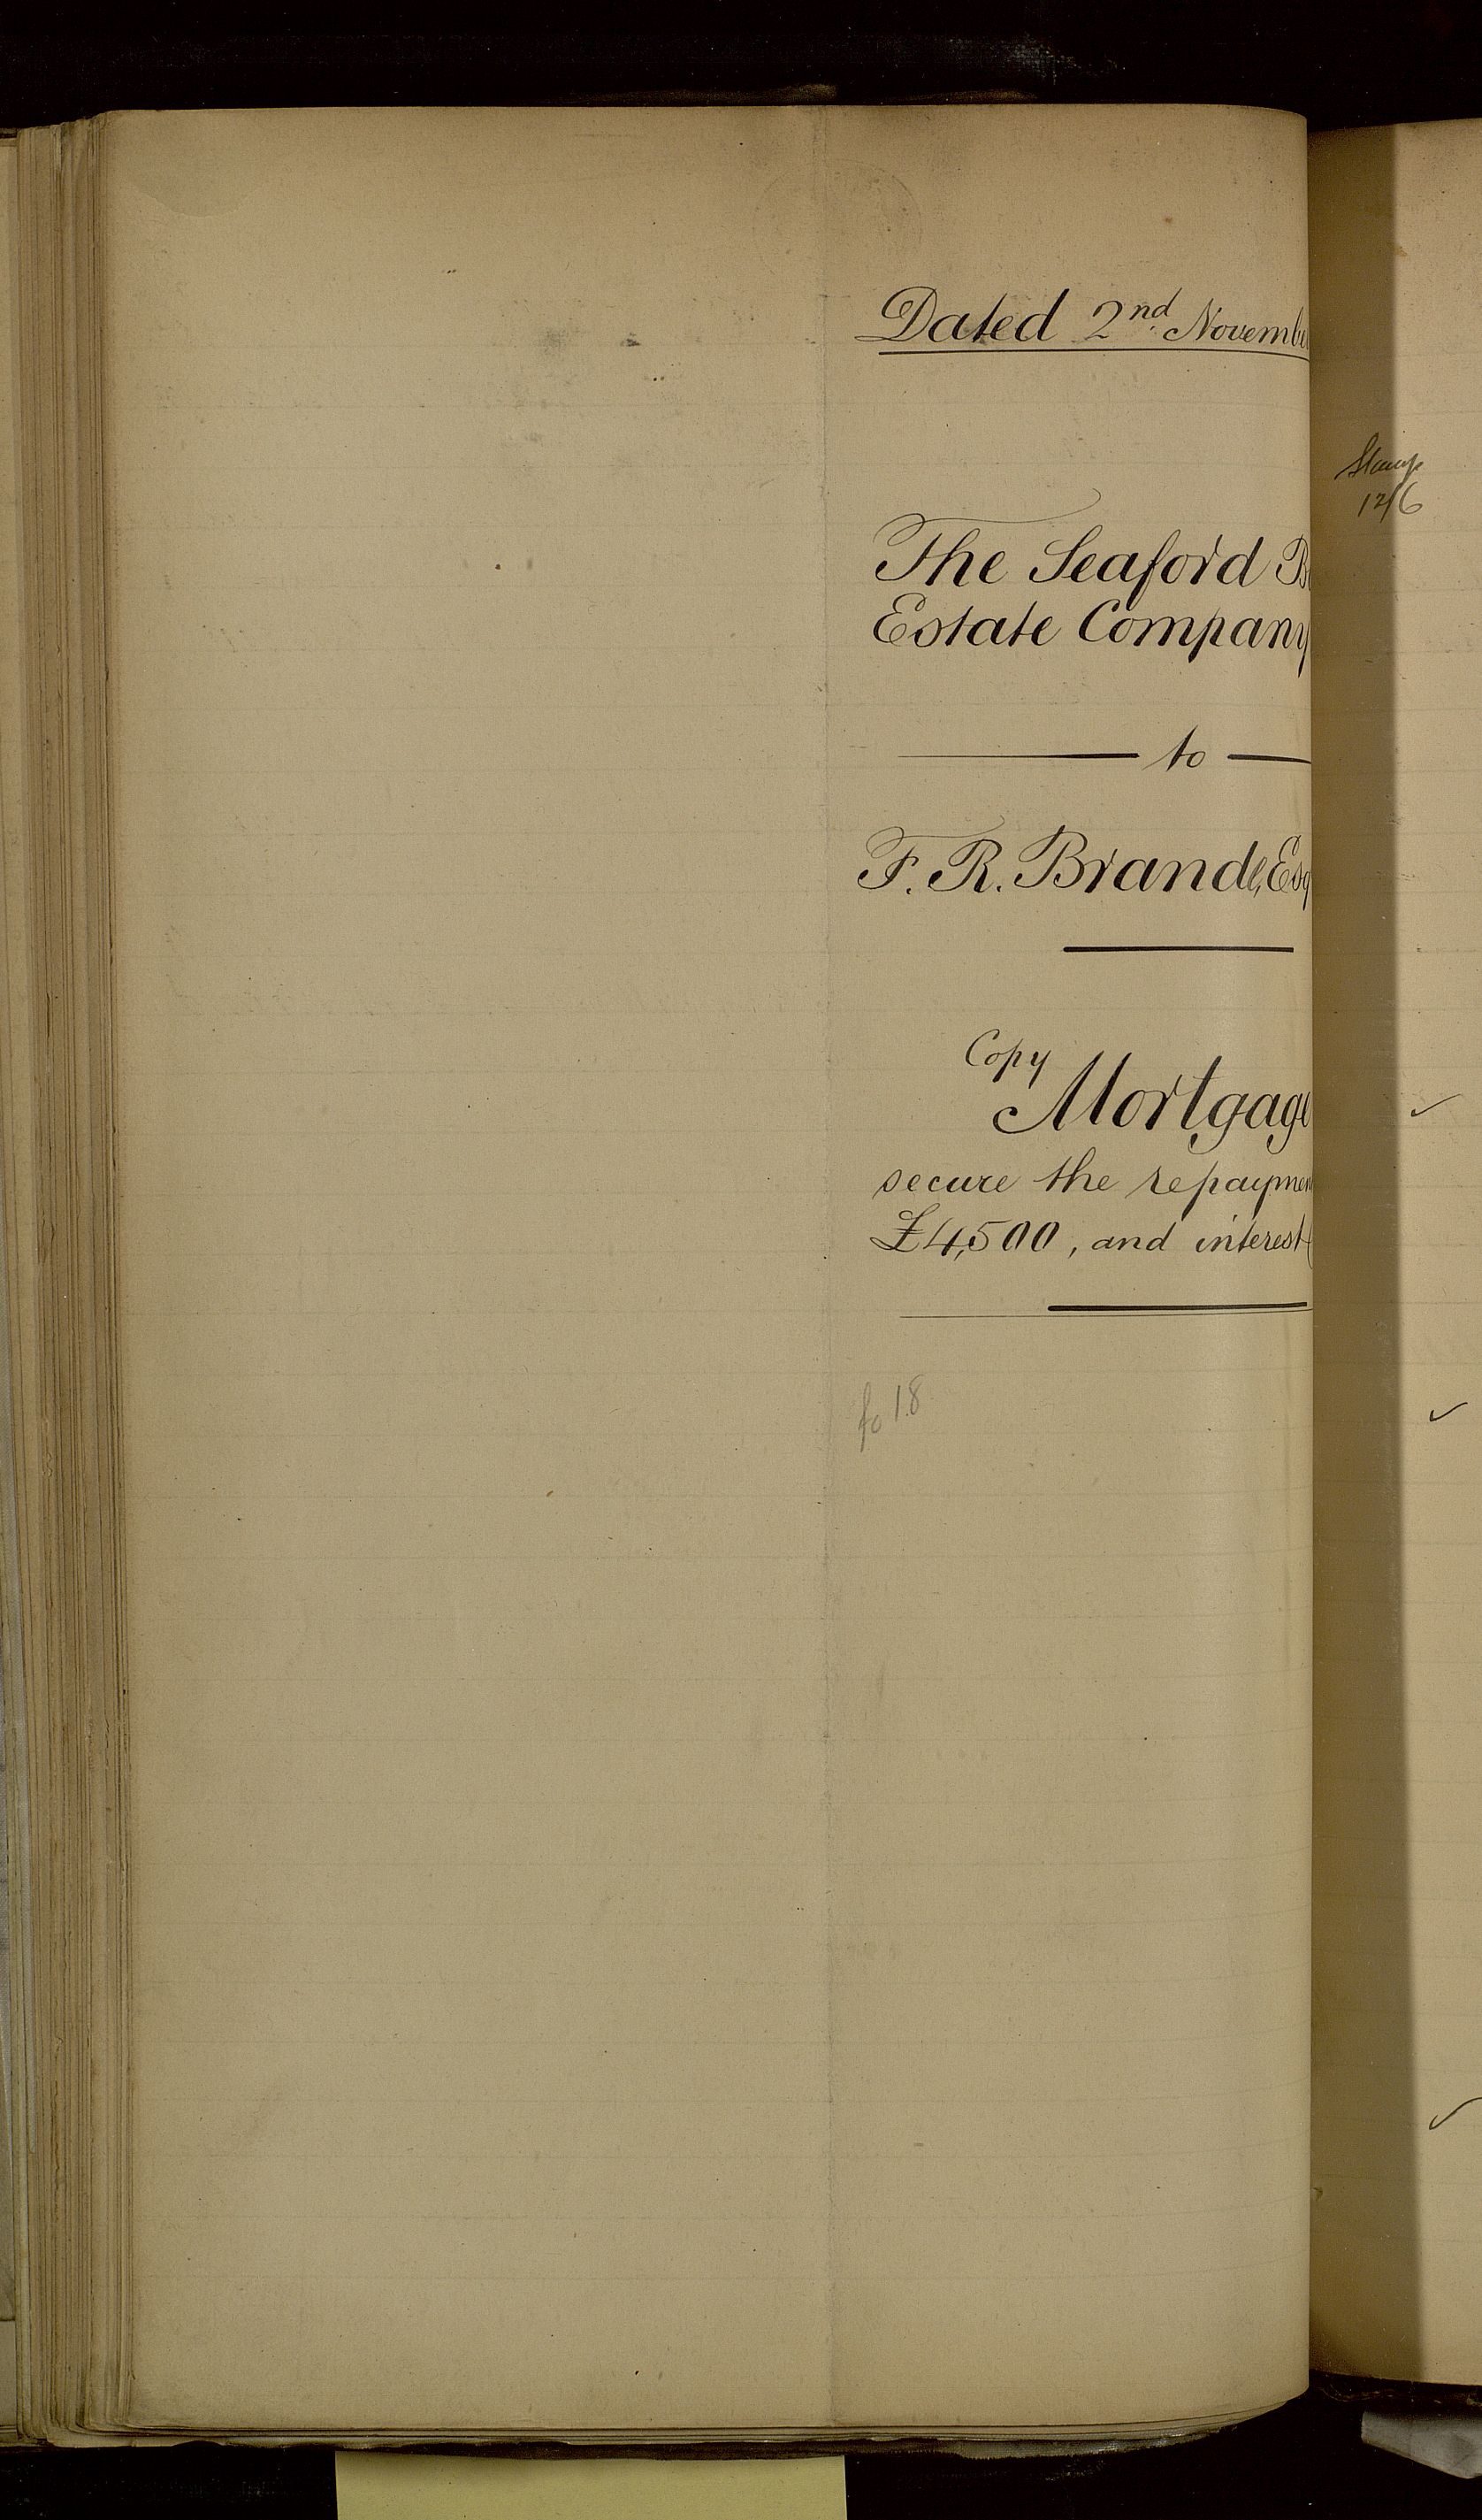 Dated 2nd Novembe
The Seaford B
Estate Company
to
F. R. Brand, Esq
Copy
Mortgage
secure the repaymen
£4,500, and interest
fo 18
Stamp
12/6